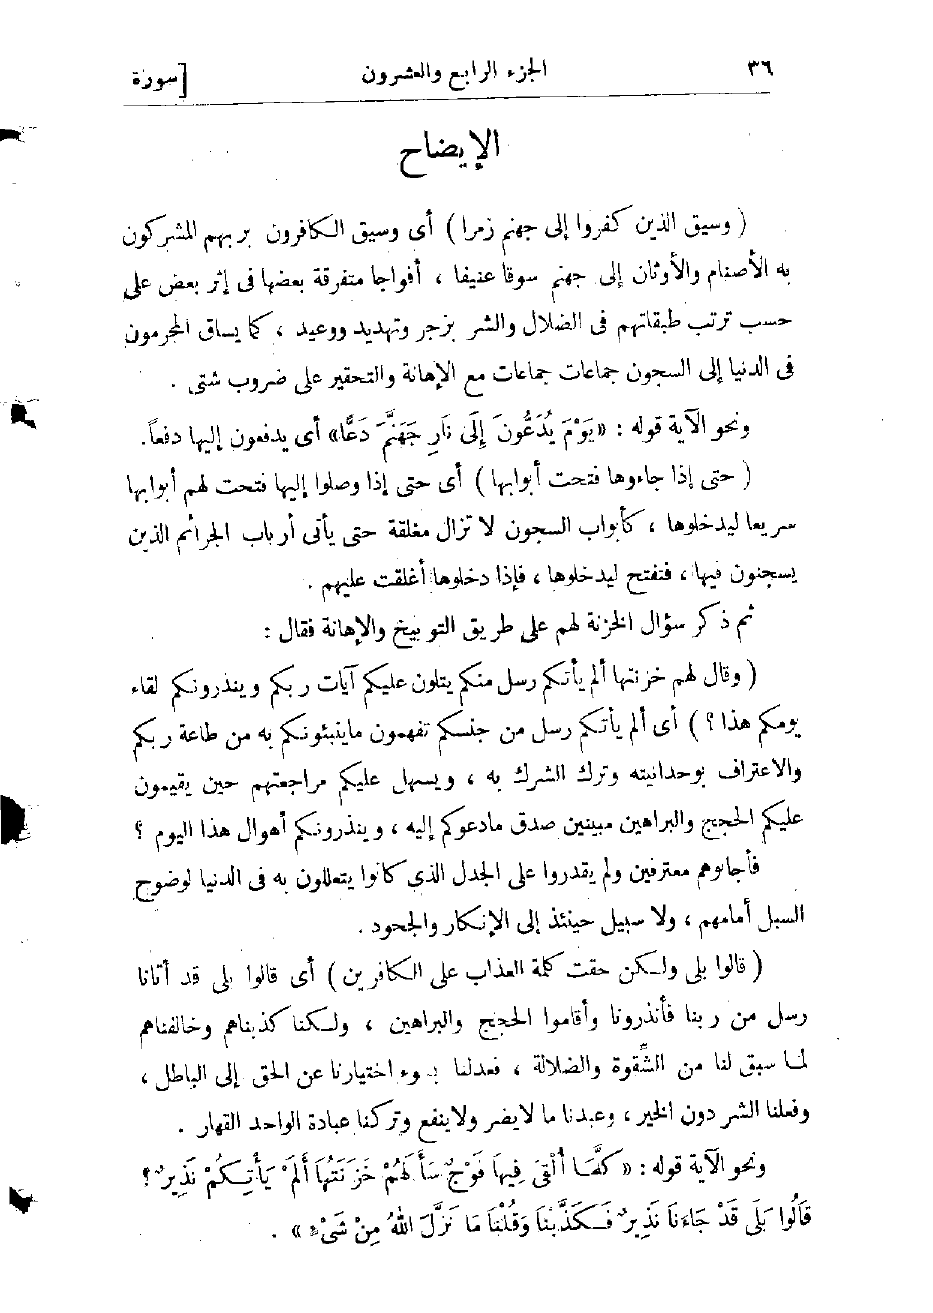 ٣٦ الجزء الرابع والعشرون [سورة
الإيضاح
( وسيق الذين كفروا إلى جهنم زمرا ) أى وسيق الكافرون بربهم المشركون
به الأصنام والأوثان إلى جهنم سوقا عنيفا ، أفواجا متفرقة بعضها فى إثر بعض على
حسب ترتب طبقاتهم فى الضلال والشر بزجر وتهديد ووعيد ، كما يساق المجرمون
فى الدنيا إلى السجون جماعات جماعات مع الإهانة والتحقير على ضروب شتى .
ونحو الآية قوله : «يَوْمَ يُدَعُّونَ إِلَى نَارِ جَهَنَّمَ دَعًّا» أى يدفعون إليها دفعاً.
( حتى إذا جاءوها فتحت أبوابها ) أى حتى إذا وصلوا إليها فتحت لهم أبوابها
سريعا ليدخلوها ، كأبواب السجون لا تزال مغلقة حتى يأتى أرباب الجرائم الذين
يسجنون فيها ، فتفتح ليدخلوها ، فإذا دخلوها أغلقت عليهم .
ثم ذكر سؤال الخزنة لهم على طريق التوبيخ والإهانة فقال :
( وقال لهم خزنتها ألم يأتكم رسل منكم يتلون عليكم آيات ربكم وينذرونكم لقاء
يومكم هذا ؟ ) أى ألم يأتكم رسل من جنسكم تفهمون ماينبئونكم به من طاعة ربكم
والاعتراف بوحدانيته وترك الشرك به ، ويسهل عليكم مراجعتهم حين يقيمون
عليكم الحجج والبراهين مبينين صدق مادعوكم إليه ، وينذرونكم أهوال هذا اليوم ؟
فأجابوهم معترفين ولم يقدروا على الجدل الذى كانوا يتعللون به فى الدنيا لوضوح
السبل أمامهم ، ولا سبيل حينئذ إلى الإنكار والجحود .
( قالوا بلى ولكن حقت كلمة العذاب على الكافرين ) أى قالوا بلى قد أتانا
رسل من ربنا فأنذرونا وأقاموا الحجج والبراهين ، ولكنا كذبناهم وخالفناهم
لما سبق لنا من الشَّقوة والضلالة ، فعدلنا بسوء اختيارنا عن الحق إلى الباطل ،
وفعلنا الشر دون الخير ، وعبدنا ما لايضر ولاينفع وتركنا عبادة الواحد القهار .
ونحو الآية قوله : « كلَّمَا أُلْقِىَ فِيهَا فَوْجٌ سَأَلَهُمْ خَزَنَتُهَا أَلَمْ يَأْتِكُمْ نَذِيرٌ ؟
قَالُوا بَلَى قَدْ جَاءَنَا نَذِيرٌ فَكَذَّبْنَا وَقُلْنَا مَا نَزَّلَ اللهُ مِنْ شَىْءٍ » .